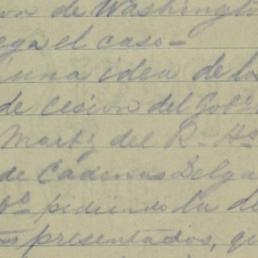 de Washington
el caso —
una idea de
de cesion del Gob
Martz del R. H
de Cadenas Delga
pidiendo la de
presentados, qu